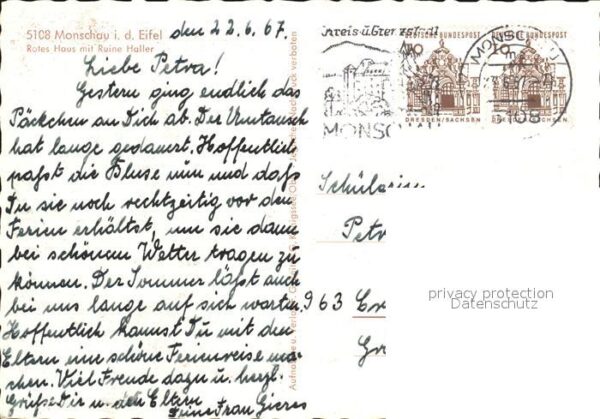 5108 Monschau i. d. Eifel
Rotes Haus mit Ruine Haller
den 22.6.67.
Liebe Petra!
Gestern ging endlich das
Päckchen an Dich ab. Der Umtausch
hat lange gedauert. Hoffentlich
paßt die Bluse nun und daß
Du sie noch rechtzeitig vor den
Ferien erhältst, um sie dann
bei schönem Wetter tragen zu
können. Der Sommer läßt auch
bei uns lange auf sich warten.
Hoffentlich kannst Du mit den
Eltern eine schöne Ferienreise ma-
chen. Viel Freude dazu u. herzl.
Grüße Dir u. den Eltern
Deine Frau Gieres
MONSCHAU
DEUTSCHE BUNDESPOST
DEUTSCHE BUNDESPOST
DRESDEN/SACHSEN
DRESDEN/SACHSEN
MONSCHAU
5108
Schülerin
Petr
963
Gr
privacy protection
Datenschutz